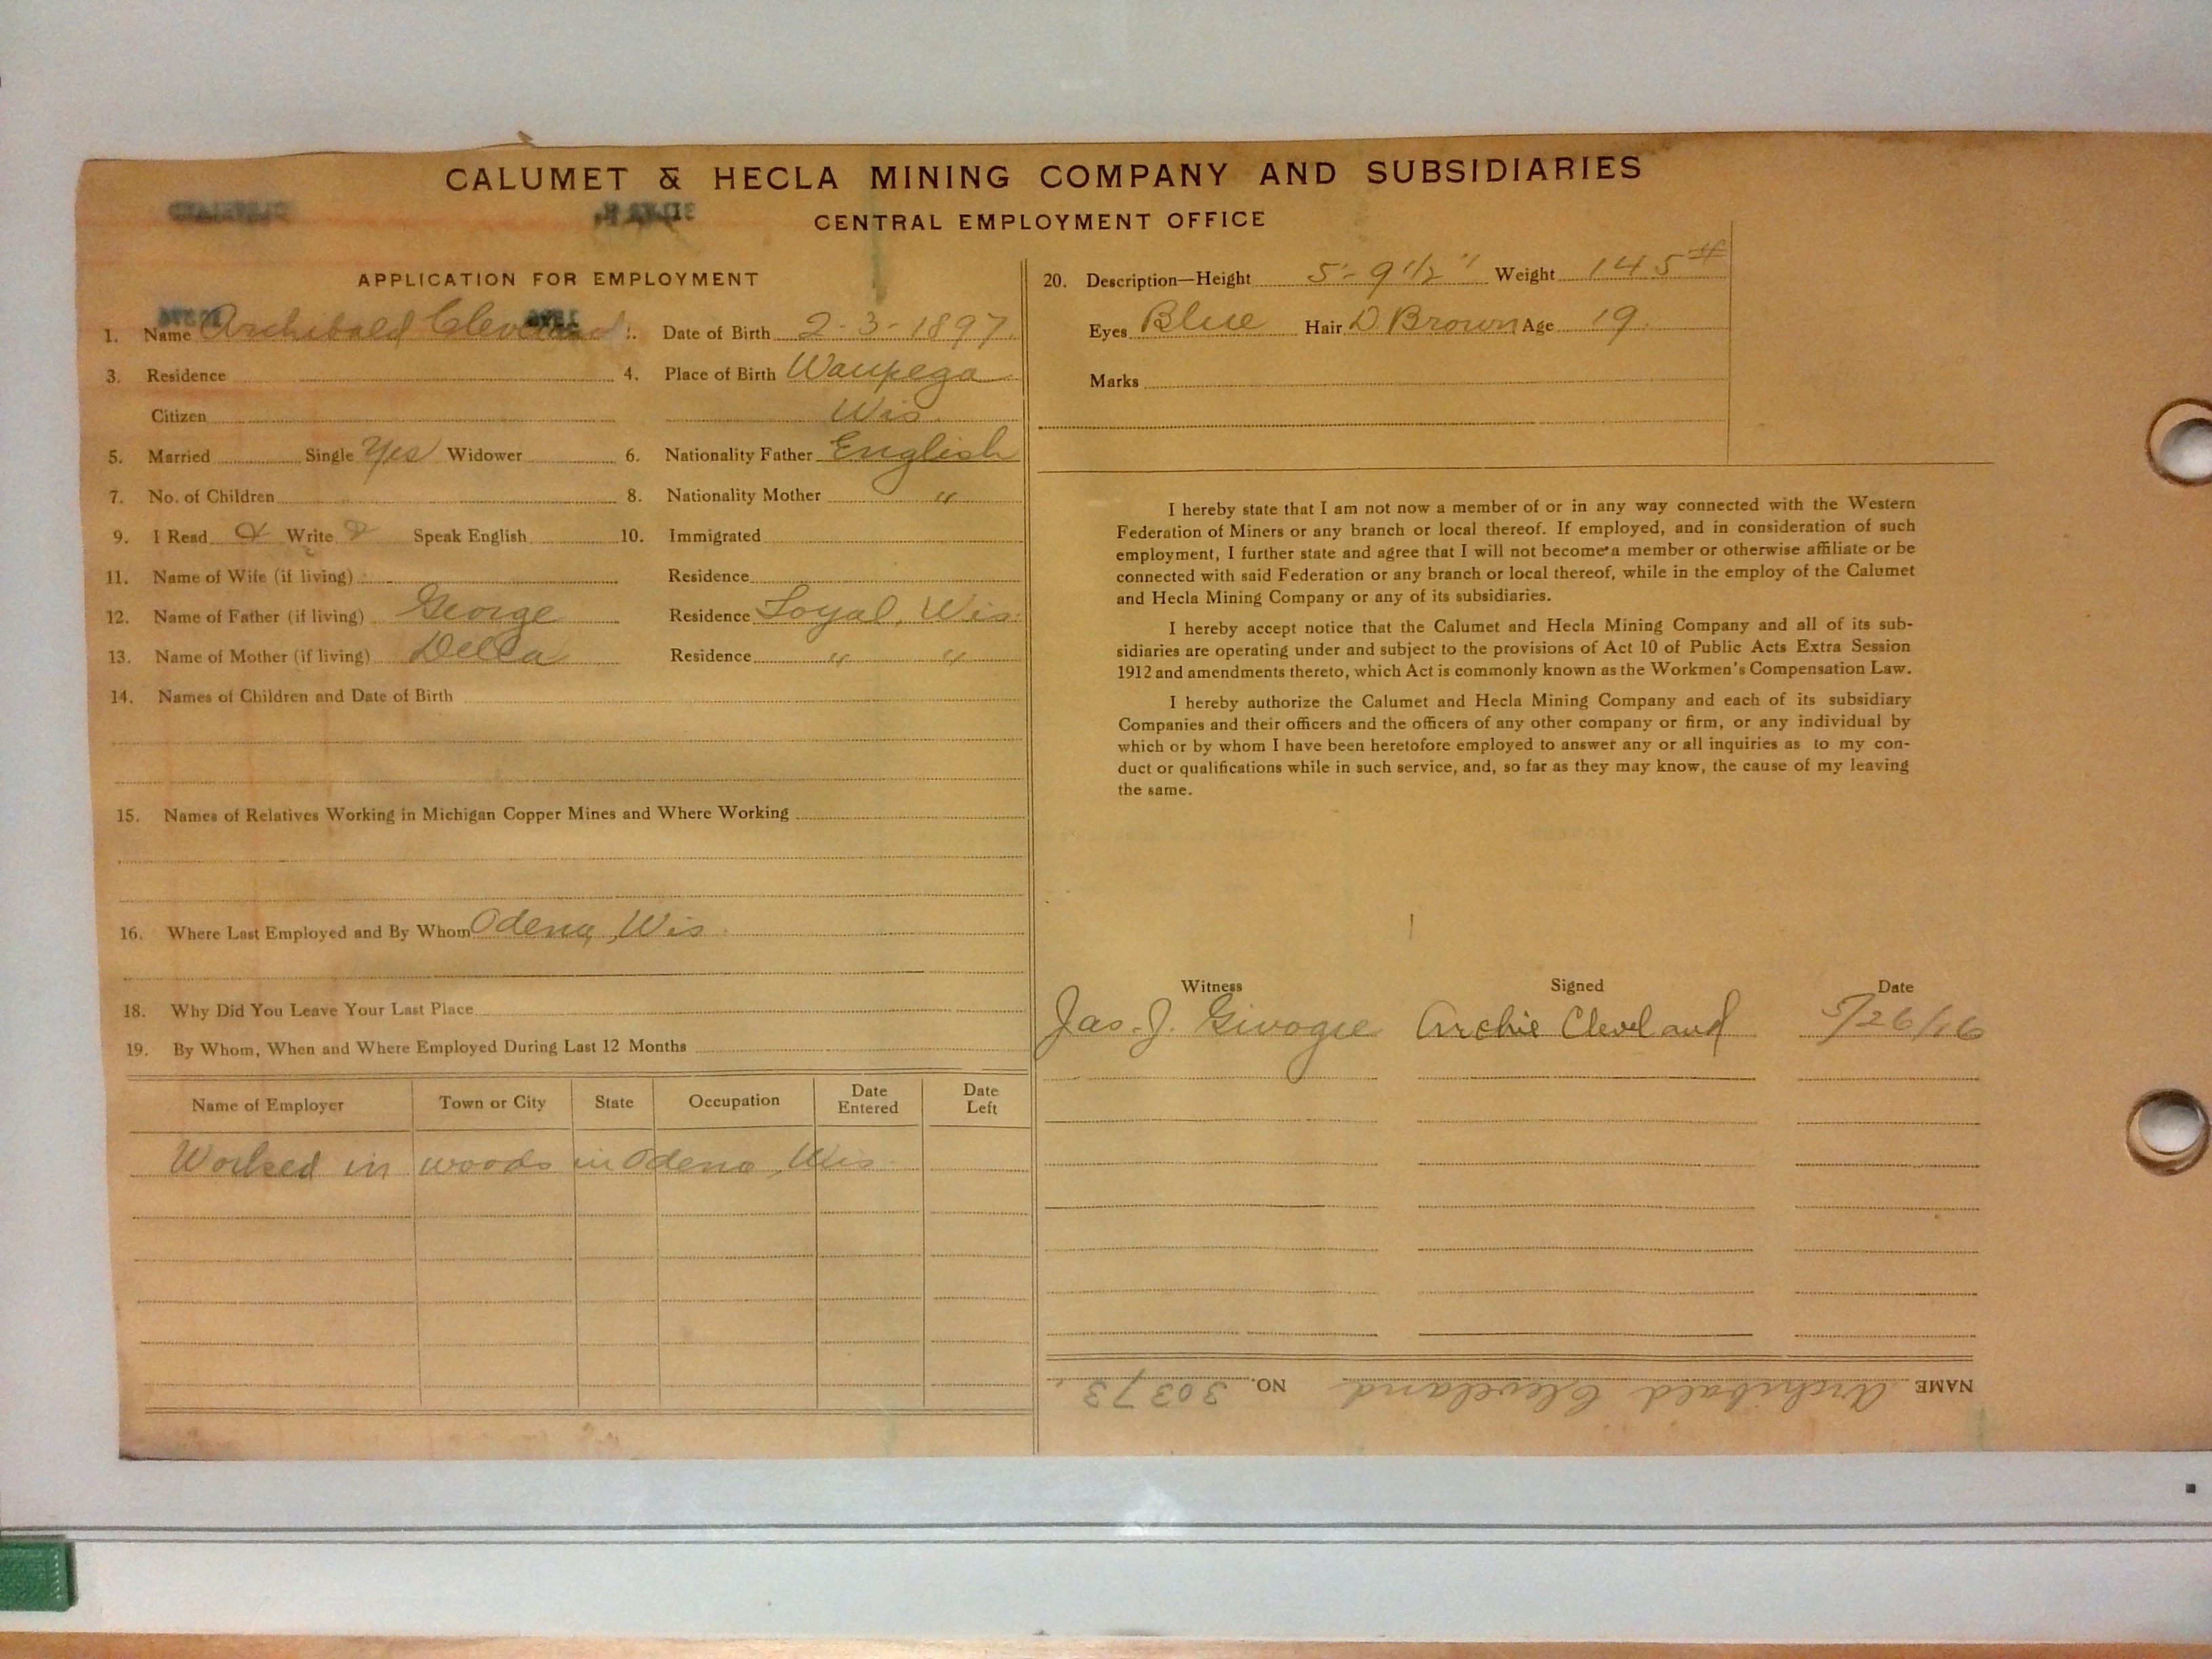 CALUMET & HECLA MINING COMPANY AND SUBSIDIARIES
CENTRAL EMPLOYMENT OFFICE
APPLICATION FOR EMPLOYMENT
1. Name Archibald Cleveland 2. Date of Birth 2-3-1897.
3. Residence 4. Place of Birth Waupega
Citizen Wis.
5. Married Single Yes Widower 6. Nationality Father English
7. No. of Children 8. Nationality Mother "
9. I Read Write Speak English 10. Immigrated
11. Name of Wife (if living) Residence
12. Name of Father (if living) George Residence Loyal, Wis.
13. Name of Mother (if living) Della Residence " "
14. Names of Children and Date of Birth
15. Names of Relatives Working in Michigan Copper Mines and Where Working
16. Where Last Employed and By Whom Odena, Wis
18. Why Did You Leave Your Last Place
19. By Whom, When and Where Employed During Last 12 Months
Name of Employer Town or City State Occupation Date Entered Date Left
Worked in woods in Odena, Wis.
20. Description—Height 5'-9 1/2" Weight 145#
Eyes Blue Hair D. Brown Age 19.
Marks
I hereby state that I am not now a member of or in any way connected with the Western
Federation of Miners or any branch or local thereof. If employed, and in consideration of such
employment, I further state and agree that I will not become a member or otherwise affiliate or be
connected with said Federation or any branch or local thereof, while in the employ of the Calumet
and Hecla Mining Company or any of its subsidiaries.
I hereby accept notice that the Calumet and Hecla Mining Company and all of its sub-
sidiaries are operating under and subject to the provisions of Act 10 of Public Acts Extra Session
1912 and amendments thereto, which Act is commonly known as the Workmen's Compensation Law.
I hereby authorize the Calumet and Hecla Mining Company and each of its subsidiary
Companies and their officers and the officers of any other company or firm, or any individual by
which or by whom I have been heretofore employed to answer any or all inquiries as to my con-
duct or qualifications while in such service, and, so far as they may know, the cause of my leaving
the same.
Witness Signed Date
Jas. J. Givogue Archie Cleveland 5/26/16
NAME Archibald Cleveland NO. 30373.